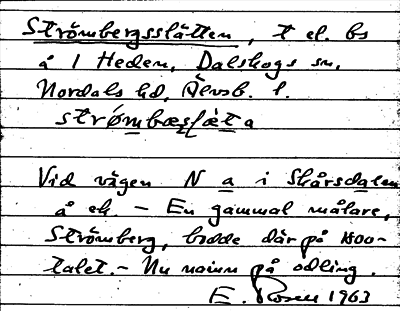 Strömbergsslätten, t el. bs
å 1 Heden, Dalskogs sn,
Nordals hd, Älvsb. l.
strømbæsslæta
Vid vägen N a i Skårsdalen
å ek. - En gammal målare,
Strömberg, bodde där på 1800-
talet. - Nu namn på odling.
E. Rosen 1963